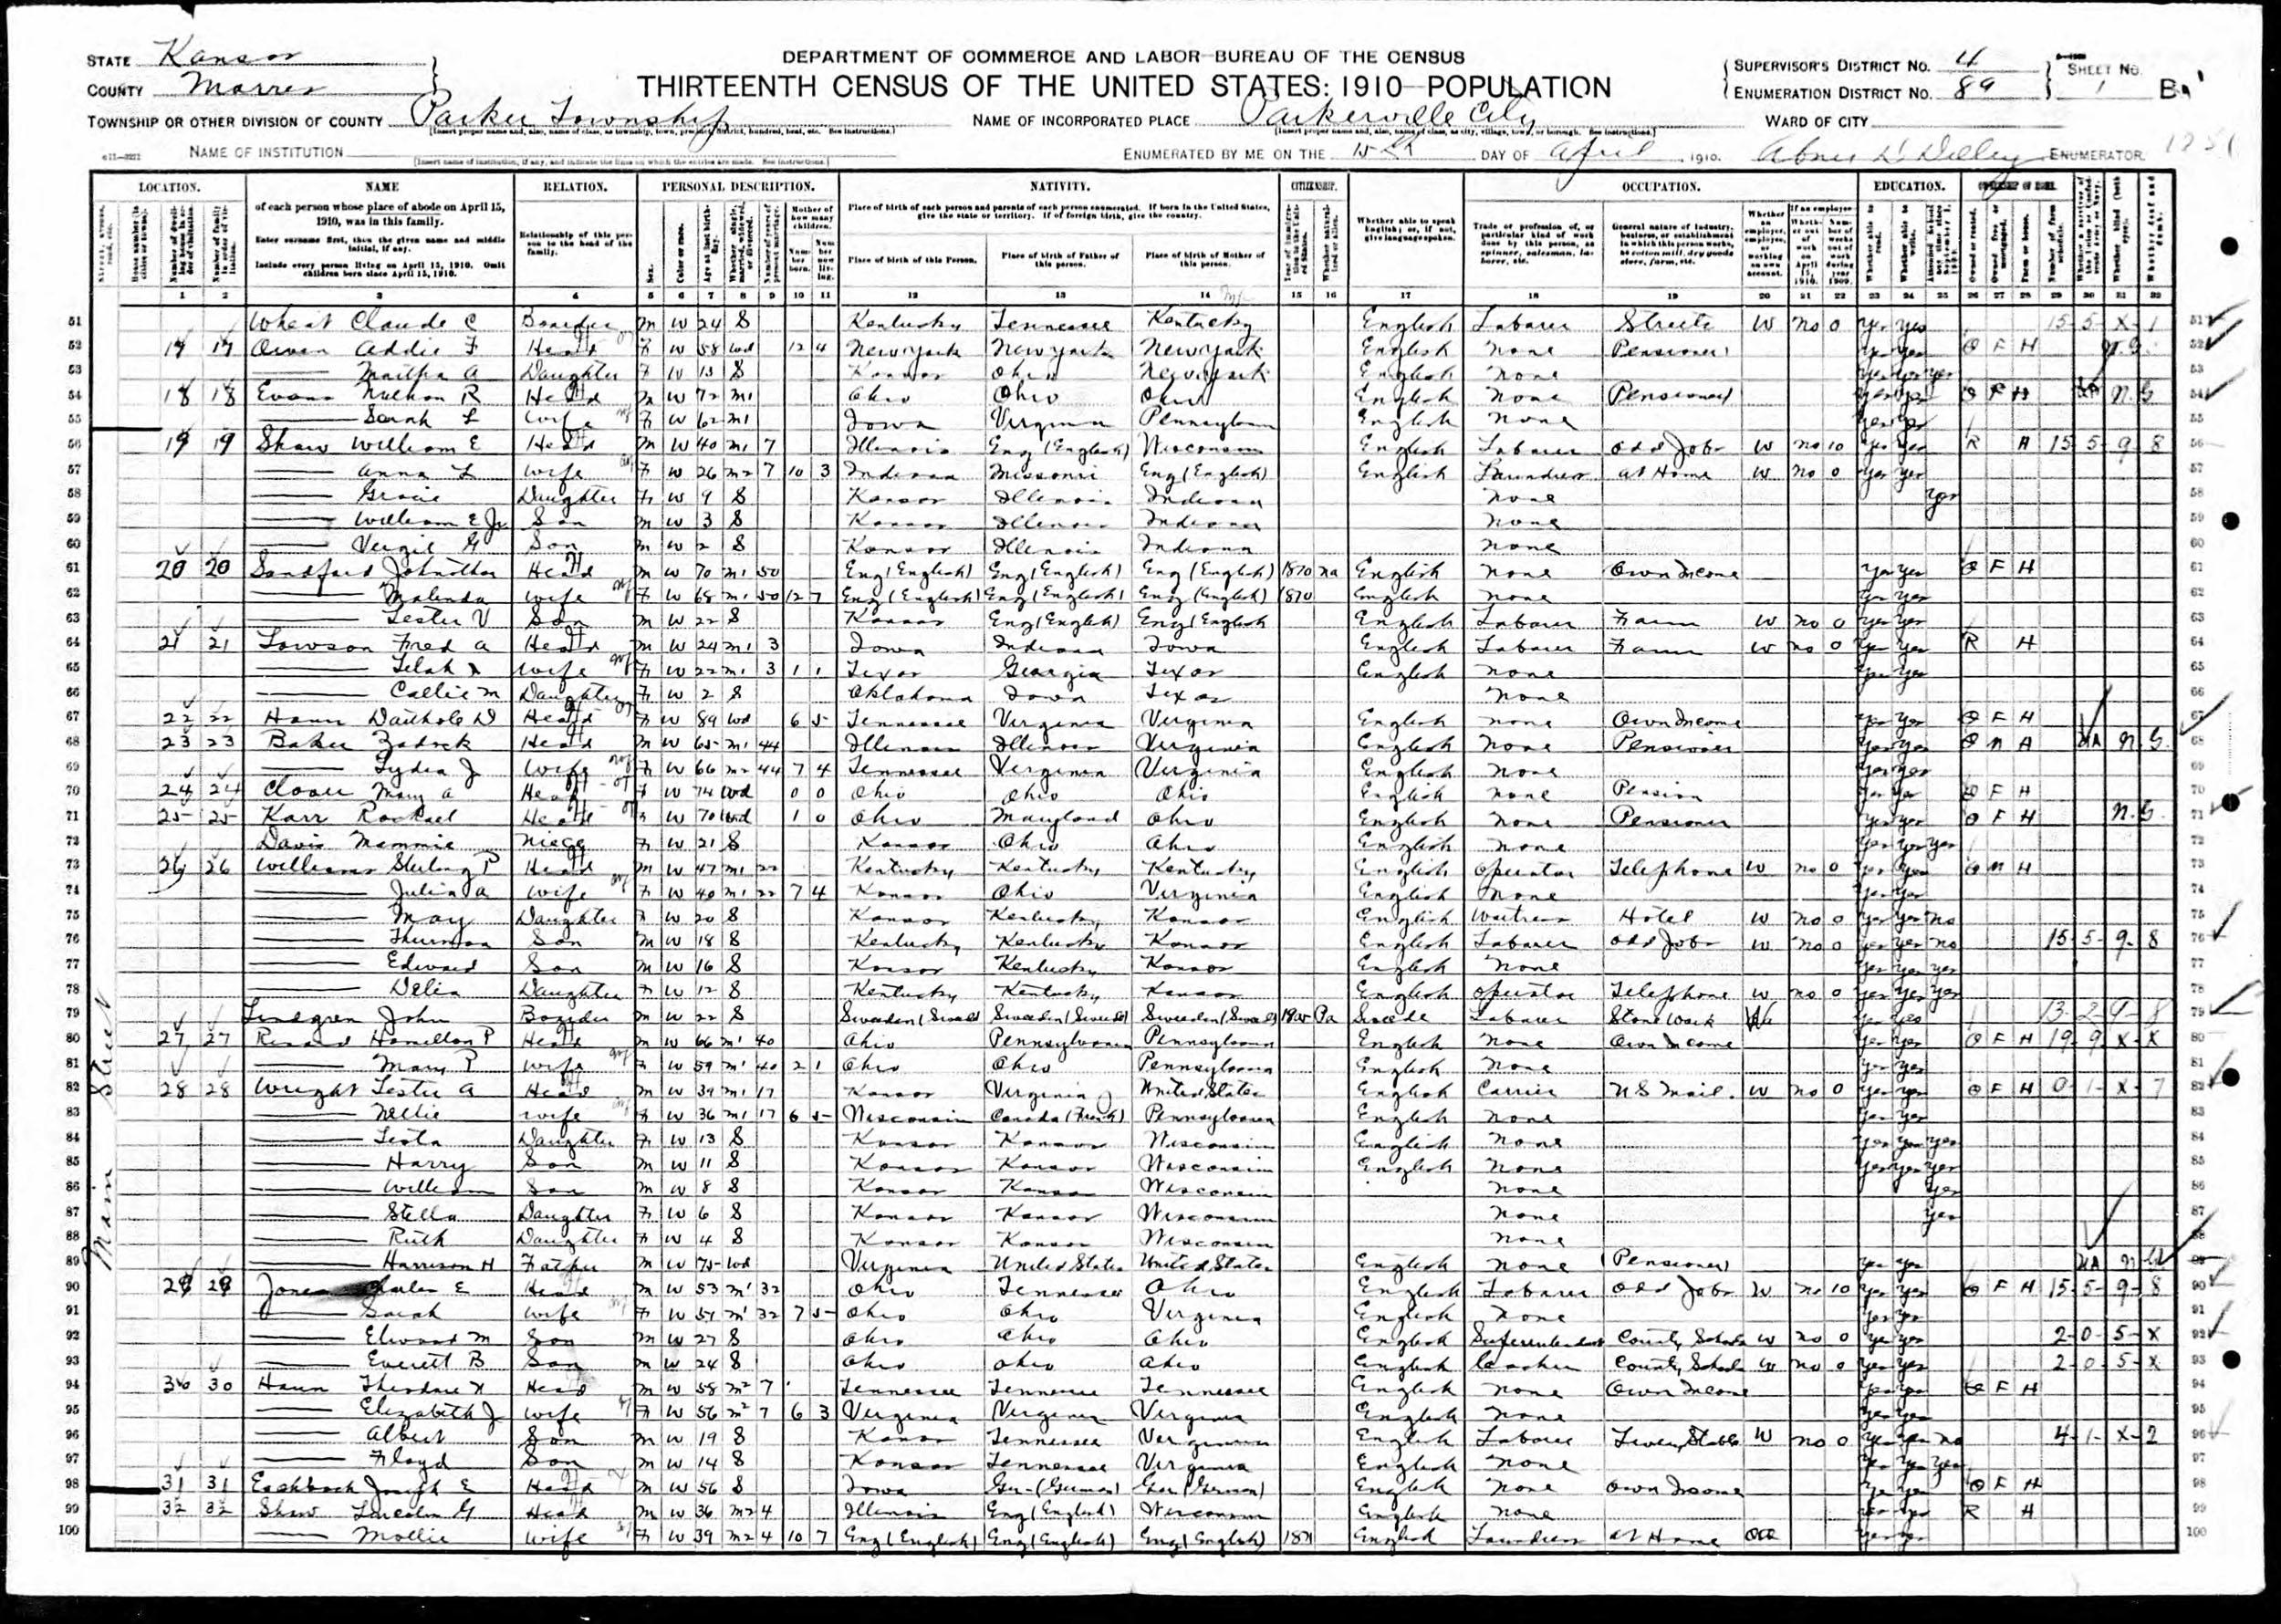 STATE Kansas
COUNTY Morris
TOWNSHIP OR OTHER DIVISION OF COUNTY Parker Township
[Insert proper name and, also, name of class, as township, town, precinct, district, hundred, beat, etc. See instructions.]
NAME OF INSTITUTION
[Insert name of institution, if any, and indicate the lines on which the entries are made. See instructions.]
DEPARTMENT OF COMMERCE AND LABOR—BUREAU OF THE CENSUS
THIRTEENTH CENSUS OF THE UNITED STATES: 1910—POPULATION
NAME OF INCORPORATED PLACE Parkerville City
[Insert proper name and, also, name of class, as city, village, town, or borough. See instructions.]
ENUMERATED BY ME ON THE 15th DAY OF April, 1910. Abner D. Dilley ENUMERATOR
SUPERVISOR'S DISTRICT No. 4
ENUMERATION DISTRICT No. 89
SHEET No. 1 B
WARD OF CITY
LOCATION. NAME RELATION. PERSONAL DESCRIPTION. NATIVITY. CITIZENSHIP. OCCUPATION. EDUCATION. OWNERSHIP OF HOME.
of each person whose place of abode on April 15, 1910, was in this family.
Enter surname first, then the given name and middle initial, if any.
Include every person living on April 15, 1910. Omit children born since April 15, 1910.
Relationship of this person to the head of the family.
Mother of how many children.
Place of birth of each person and parents of each person enumerated. If born in the United States, give the state or territory. If of foreign birth, give the country.
Place of birth of this Person.
Place of birth of Father of this person.
Place of birth of Mother of this person.
Whether able to speak English; or, if not, give language spoken.
1 2 3 4 5 6 7 8 9 10 11 12 13 14 15 16 17 18 19 20 21 22 23 24 25 26 27 28 29 30 31 32
Main Street
51 Wheat Claude C Boarder M W 24 S Kentucky Tennessee Kentucky English Laborer Streets W No 0 Yes Yes 15-5-X-1
52 17 17 Owen Addie F Head F W 58 Wd 12 4 New York New York New York English None Pensioner Yes Yes O F H
53 Martha A Daughter F W 13 S Kansas Ohio New York English None Yes Yes Yes
54 18 18 Evans Nathan R Head M W 72 M1 Ohio Ohio Ohio English None Pensioner Yes Yes O F H
55 Sarah L Wife F W 62 M1 Iowa Virginia Pennsylvan English None Yes Yes
56 19 19 Shaw William E Head M W 40 M1 7 Illinois Eng (English) Wisconsin English Laborer Odd Jobs W No 10 Yes Yes R H 15-5-9-8
57 Anna L Wife F W 26 M2 7 10 3 Indiana Missouri Eng (English) English Laundress at Home W No 0 Yes Yes
58 Gracie Daughter F W 9 S Kansas Illinois Indiana None Yes
59 William E Jr Son M W 3 S Kansas Illinois Indiana None
60 Vergil G Son M W 2 S Kansas Illinois Indiana None
61 20 20 Sandford Johnathan Head M W 70 M1 50 Eng (English) Eng (English) Eng (English) 1870 Na English None Own Income Yes Yes O F H
62 Malinda Wife F W 68 M1 50 12 7 Eng (English) Eng (English) Eng (English) 1870 English None Yes Yes
63 Lester V Son M W 22 S Kansas Eng (English) Eng (English English Laborer Farm W No 0 Yes Yes
64 21 21 Lawson Fred A Head M W 24 M1 3 Iowa Indiana Iowa English Laborer Farm W No 0 Yes Yes R H
65 Wife F W 22 M1 3 1 1 Texas Georgia Texas English None Yes Yes
66 Callie M Daughter F W 2 S Oklahoma Iowa Texas None
67 22 22 Head F W 89 Wd 6 5 Tennessee Virginia Virginia English None Own Income Yes Yes O F H
68 23 23 Baker Zadock Head M W 65 M1 44 Illinois Illinois Virginia English None Pensioner Yes Yes O M H
69 Lydia J Wife F W 66 M2 44 7 4 Tennessee Virginia Virginia English None Yes Yes
70 24 24 Clover Mary A Head F W 74 Wd 0 0 Ohio Ohio Ohio English None Pension Yes Yes O F H
71 25 25 Karr Rachael Head F W 70 Wd 1 0 Ohio Maryland Ohio English None Pensioner Yes Yes O F H
72 Davis Mammie Niece F W 21 S Kansas Ohio Ohio English None Yes Yes Yes
73 26 26 Williams Sterling P Head M W 47 M1 22 Kentucky Kentucky Kentucky English Operator Telephone W No 0 Yes Yes O M H
74 Julina A Wife F W 40 M1 22 7 4 Kansas Ohio Virginia English None Yes Yes
75 May Daughter F W 20 S Kansas Kentucky Kansas English Waitress Hotel W No 0 Yes Yes No
76 Thurman Son M W 18 S Kentucky Kentucky Kansas English Laborer Odd Jobs W No 0 Yes Yes No 15-5-9-8
77 Edward Son M W 16 S Kansas Kentucky Kansas English None Yes Yes Yes
78 Delia Daughter F W 12 S Kentucky Kentucky Kansas English Operator Telephone W No 0 Yes Yes Yes
79 Lindgren John Boarder M W 22 S Sweeden (Swede) Sweeden (Swede) Sweeden (Swede) Pa Swede Laborer Stone Work Yes Yes 13-2-9-8
80 27 27 Hamilton P Head M W 66 M1 40 Ohio Pennsylvania Pennsylvania English None Own Income Yes Yes O F H 19-9-X-X
81 Mary P Wife F W 59 M1 40 2 1 Ohio Ohio Pennsylvania English None Yes Yes
82 28 28 Wright Lester A Head M W 39 M1 17 Kansas Virginia United States English Carrier U S Mail. W No 0 Yes Yes O F H 0-1-X-7
83 Nellie Wife F W 36 M1 17 6 5 Wisconsin Canada (French) Pennsylvania English None Yes Yes
84 Leota Daughter F W 13 S Kansas Kansas Wisconsin English None Yes Yes Yes
85 Harry Son M W 11 S Kansas Kansas Wisconsin English None Yes Yes Yes
86 William Son M W 8 S Kansas Kansas Wisconsin None Yes
87 Stella Daughter F W 6 S Kansas Kansas Wisconsin None Yes
88 Ruth Daughter F W 4 S Kansas Kansas Wisconsin None
89 Harrison H Father M W 75 Wd Virginia United States United States English None (Pensioner) Yes Yes
90 29 29 Jones Charles E Head M W 53 M1 32 Ohio Tennessee Ohio English Laborer Odd Jobs W No 10 Yes Yes O F H 15-5-9-8
91 Sarah Wife F W 51 M1 32 7 5 Ohio Ohio Virginia English None Yes Yes
92 Elwood M Son M W 27 S Ohio Ohio Ohio English Superintendent County Schools W No 0 Yes Yes 2-0-5-X
93 Everett B Son M W 24 S Ohio Ohio Ohio English County Schools W No 0 Yes Yes 2-0-5-X
94 30 30 Haun Theodore N Head M W 58 M2 7 Tennessee Tennessee Tennessee English None Own Income Yes Yes O F H
95 Elizabeth J Wife F W 56 M2 7 6 3 Virginia Virginia Virginia English None Yes Yes
96 Albert Son M W 19 S Kansas Tennessee Virginia English Laborer Livery Stable W No 0 Yes Yes No 4-1-X-2
97 Floyd Son M W 14 S Kansas Tennessee Virginia English None Yes Yes Yes
98 31 31 Eschbach Joseph E Head M W 56 S Iowa Ger (German) Ger (German) English None Own Income Yes Yes O F H
99 32 32 Shaw Lincoln G Head M W 36 M2 4 Illinois Eng (English) Wisconsin English None Yes Yes R H
100 Mollie Wife F W 39 M2 4 10 7 Eng (English) Eng (English) Eng (English) English Laundress At Home OA Yes Yes